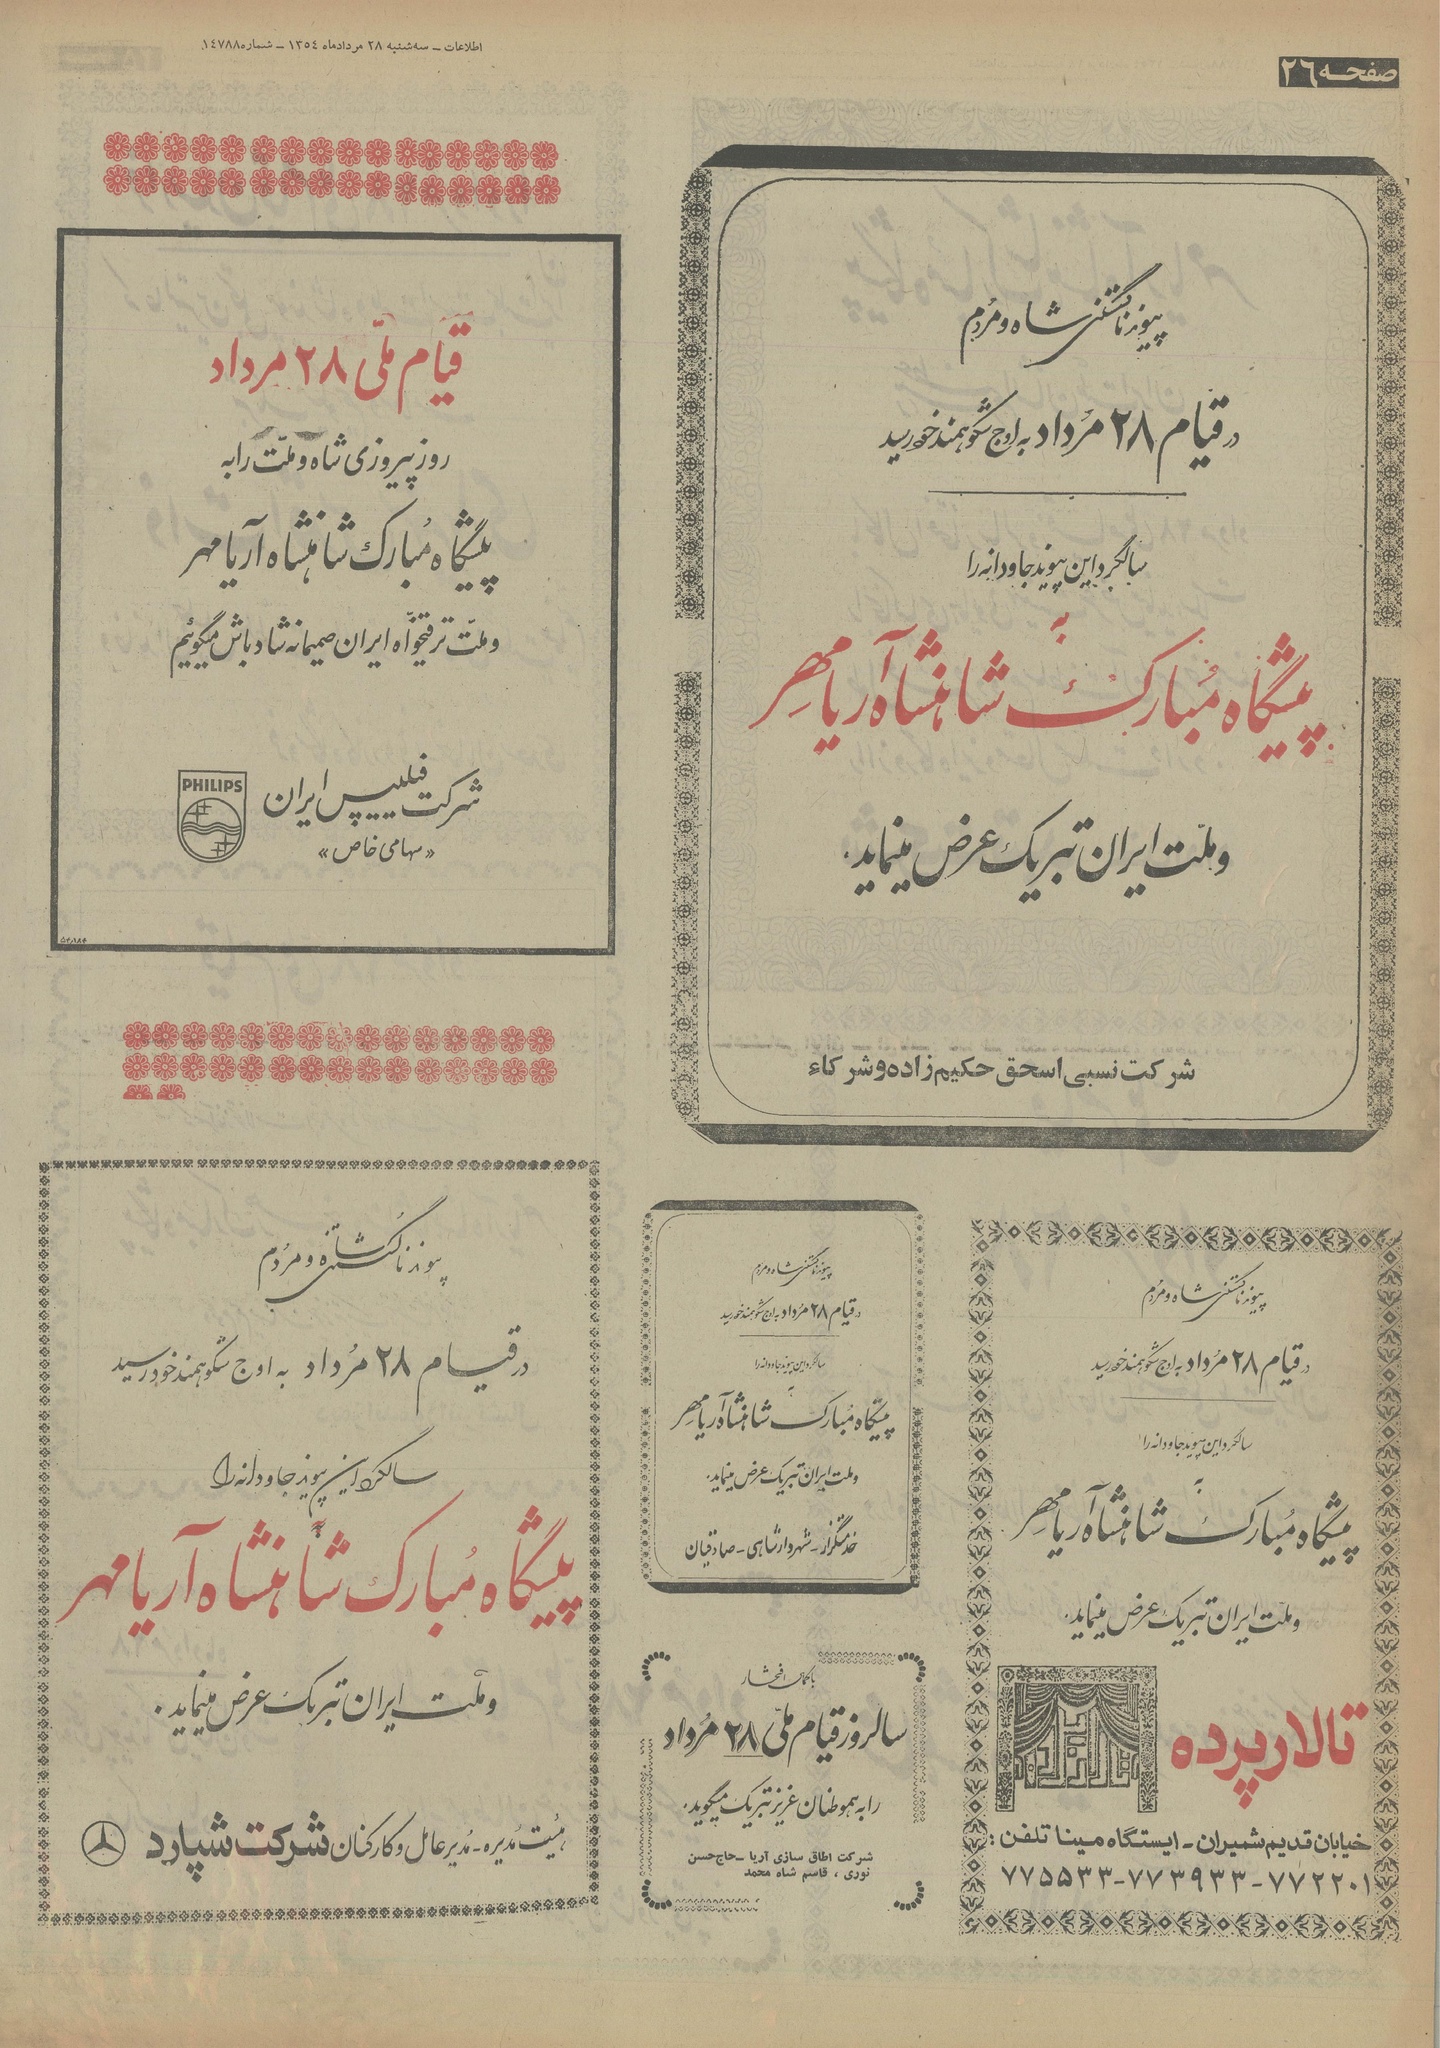 صفحه ۲۶
اطلاعات ـ سه‌شنبه ۲۸ مردادماه ۱۳۵۴ ـ شماره ۱۴۷۸۸
پیوند ناگسستنی شاه و مردم
در قیام ۲۸ مُرداد به اوج شکوهمند خود رسید
سالگرد این پیوند جاودانه را
به
پیشگاه مُبارک شاهنشاه آریامهر
و ملّت ایران تبریک عرض مینماید.
شرکت نسبی اسحق حکیم‌زاده و شرکاء
قیام ملّی ۲۸ مرداد
روز پیروزی شاه و ملّت را به
پیشگاه مُبارک شاهنشاه آریامهر
و ملّت ترقیخواه ایران صمیمانه شادباش میگوئیم
شرکت فیلیپس ایران
«سهامی خاص»
PHILIPS
پیوند ناگسستنی شاه و مردم
در قیام ۲۸ مُرداد به اوج شکوهمند خود رسید
سالگرد این پیوند جاودانه را
به
پیشگاه مُبارک شاهنشاه آریامهر
و ملّت ایران تبریک عرض مینماید.
تالار پرده
خیابان قدیم شمیران ـ ایستگاه مینا تلفن:
۷۷۲۲۰۱-۷۷۳۹۳۳-۷۷۵۵۳۳
پیوند ناگسستنی شاه و مردم
در قیام ۲۸ مُرداد به اوج شکوهمند خود رسید
سالگرد این پیوند جاودانه را
به
پیشگاه مُبارک شاهنشاه آریامهر
و ملت ایران تبریک عرض مینماید.
خدمتگزار ـ شهردار شاهی ـ صادقیان
با کمال افتخار
سالروز قیام ملّی ۲۸ مُرداد
را به هموطنان عزیز تبریک میگوید.
شرکت اطاق سازی آریا ـ حاج حسن
نوری ، قاسم شاه محمد
پیوند ناگسستنی شاه و مردم
در قیام ۲۸ مُرداد به اوج شکوهمند خود رسید
سالگرد این پیوند جاودانه را
به
پیشگاه مُبارک شاهنشاه آریامهر
و ملّت ایران تبریک عرض مینماید.
هیئت مُدیره ـ مُدیر عامل و کارکنان شرکت شپارد